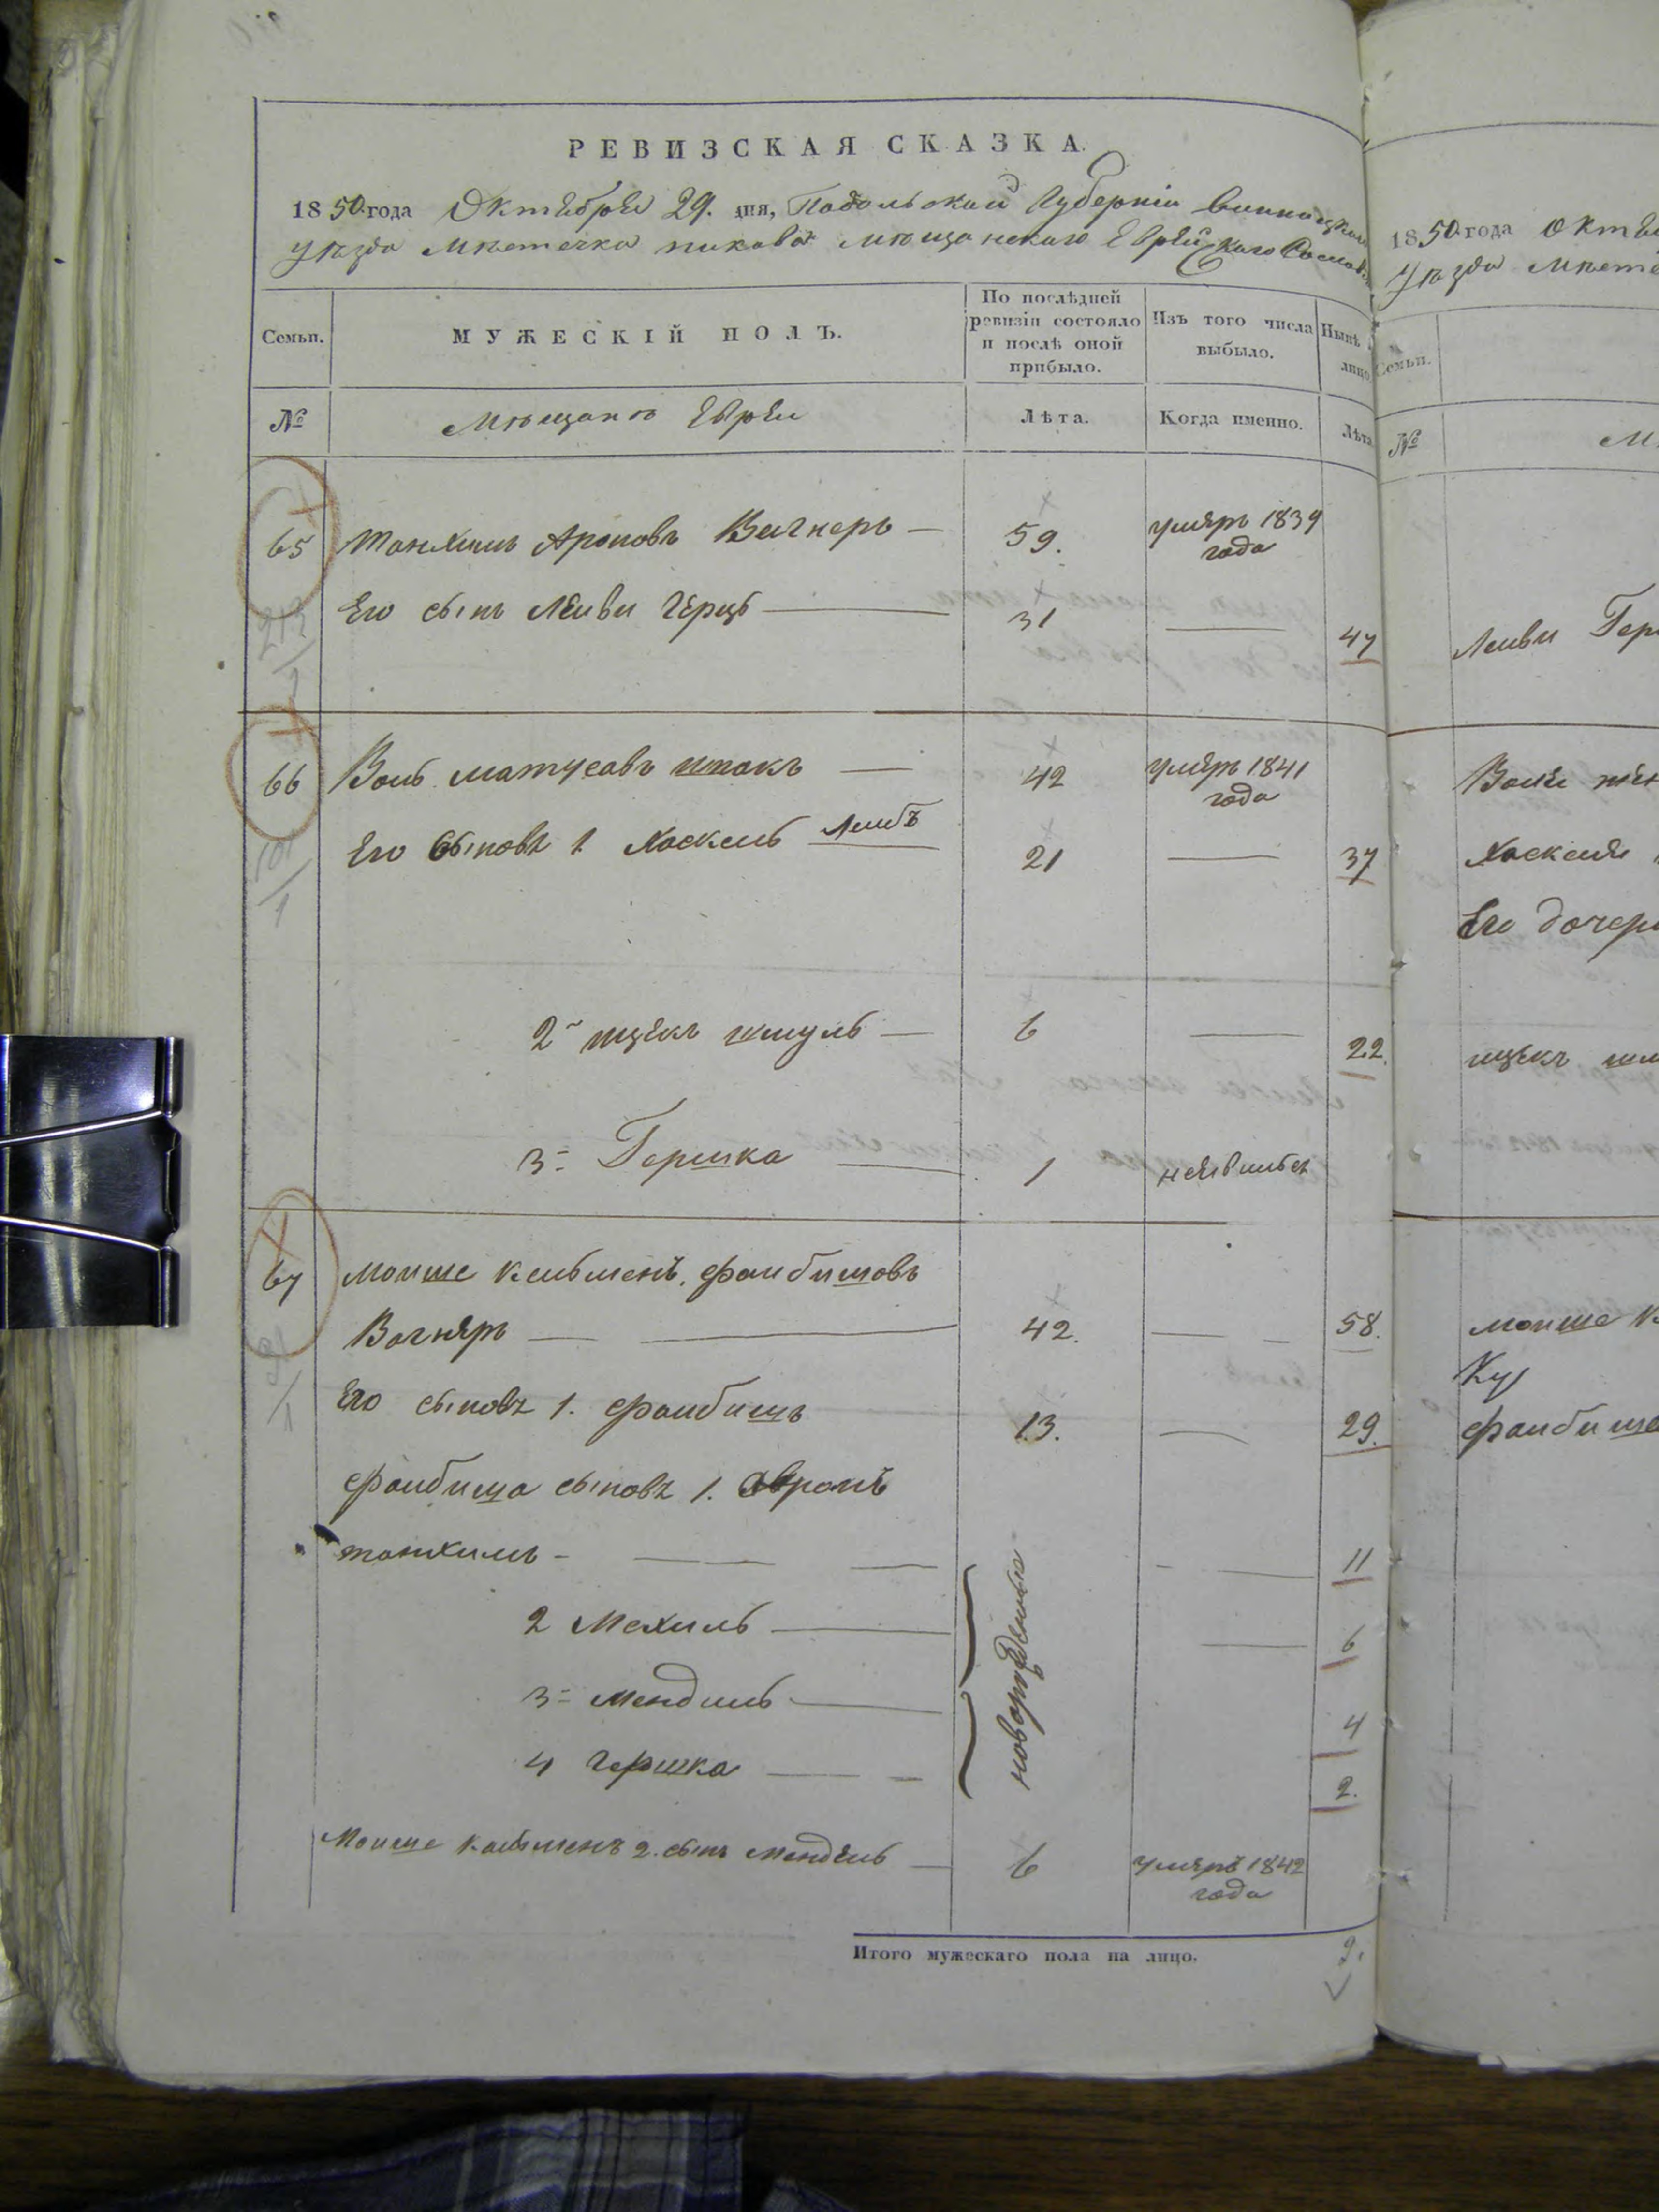 РЕВИЗСКАЯ СКАЗКА.
1850 года Октебрея 29. дня, Подольской Губерніи Винницкаго
Уѣзда Мѣстечка пикова мѣщанскаго Еврейскаго Сословія
Семьи.
МУЖЕСКІЙ ПОЛЪ.
По послѣдней ревизіи состояло и послѣ оной прибыло.
Изъ того числа выбыло.
Нынѣ
лицо
№
Мѣщанъ Евреи
Лѣта.
Когда именно.
Лѣта
65 Танхимъ Ароновъ Вагнеръ — 59. умеръ 1839 года
Его сынъ Лейви Герцъ — 31 — 47
66 Воль матусовъ штокъ — 42 умеръ 1841 года
Его сыновя 1 Хаскель Лейбъ 21 — 37
2 ицекъ шмуль — 6 — 22.
3 Гершка — 1 неявилься
67 моише кельменъ, фаибишовъ
Вагнеръ — 42. — 58.
Его сыновя 1. фаибишъ 13. — 29.
фаибиша сыновя 1. Авромъ
танхимъ — — 11
2 Мехиль — — 6
3 мендиль — 4
4 гершка — 2.
новорожденны
Моише кельменъ 2. сынъ мендель — 6 умеръ 1842 года
Итого мужескаго пола на лицо. 9.
1850 года Октеб
Уѣзда Мѣсте
Семьи.
№
М
Лейви Гер
Воля жен
Хаскеля
Его дочери
ицекъ шм
моише к
фаибиша